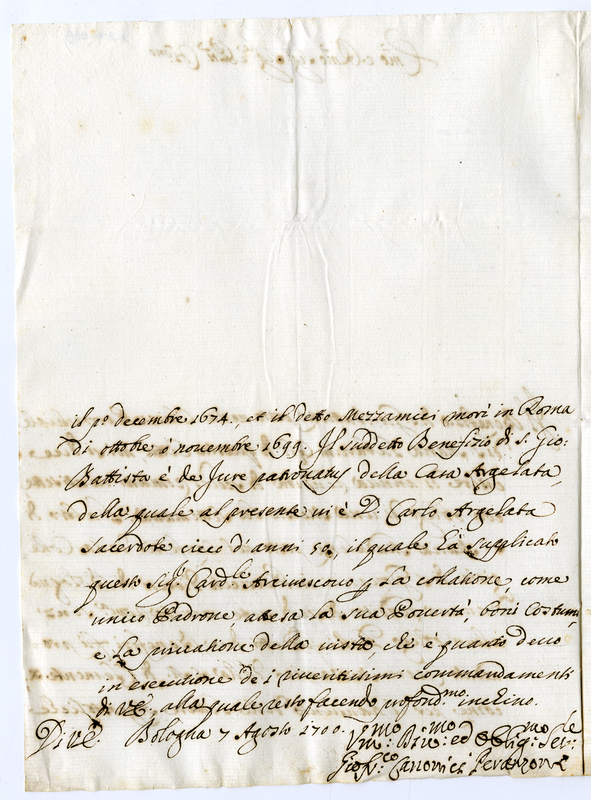 il p.º decembre 1674., et il detto Mezzamici morì in Roma
di ottobre ò novembre 1699. Il suddetto Benefizio di S. Gio:
Battista è de Jure patronatus della Casa Argelata,
della quale al presente vi è D. Carlo Argelata
Sacerdote cieco d'anni 50, il quale hà supplicato
questo Sig.r Card.le Arcivescovo p La collatione, come
unico Padrone, attesa La sua Povertà, boni Costumi,
e La privatione della vista, ch'è quanto devo
in esecutione de i riveritissimi commandamenti
di V.E. alla quale resto facendo profond.mo inchino.
Di V.E. Bologna 7 Agosto 1700.
V.mo: Div.mo: ed Oblig.mo: Se.le
Gio: Canonici